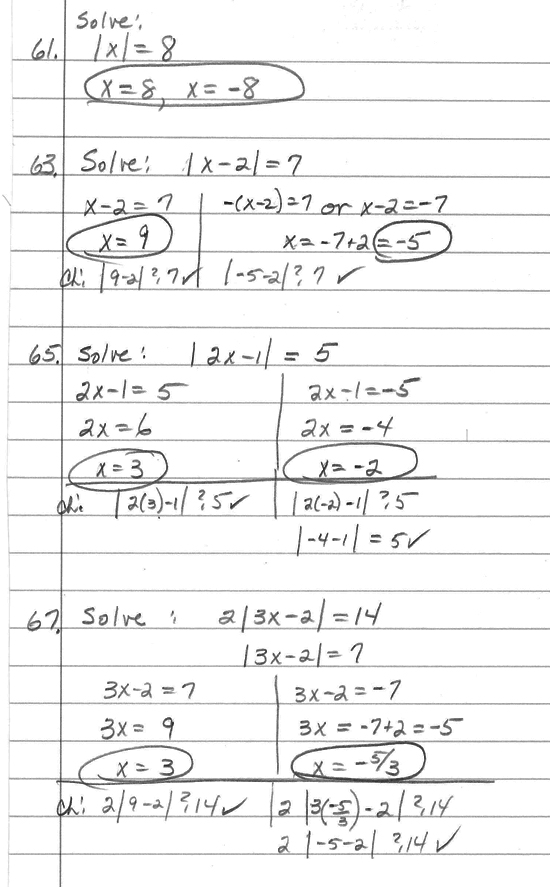 Solve:
61. |x| = 8
x = 8, x = -8
63. Solve: |x-2| = 7
x-2 = 7 -(x-2)=7 or x-2=-7
x = 9 x = -7+2 = -5
Ch: |9-2| ?, 7 ✓ |-5-2| ?, 7 ✓
65. Solve: |2x-1| = 5
2x-1 = 5 2x-1=-5
2x = 6 2x = -4
x = 3 x = -2
Ch: |2(3)-1| ?, 5 ✓ |2(-2)-1| ?, 5
|-4-1| = 5 ✓
67. Solve: 2|3x-2| = 14
|3x-2| = 7
3x-2 = 7 3x-2 = -7
3x = 9 3x = -7+2 = -5
x = 3 x = -5/3
Ch: 2|9-2| ?, 14 ✓ 2|3(-5/3)-2| ?, 14
2|-5-2| ?, 14 ✓